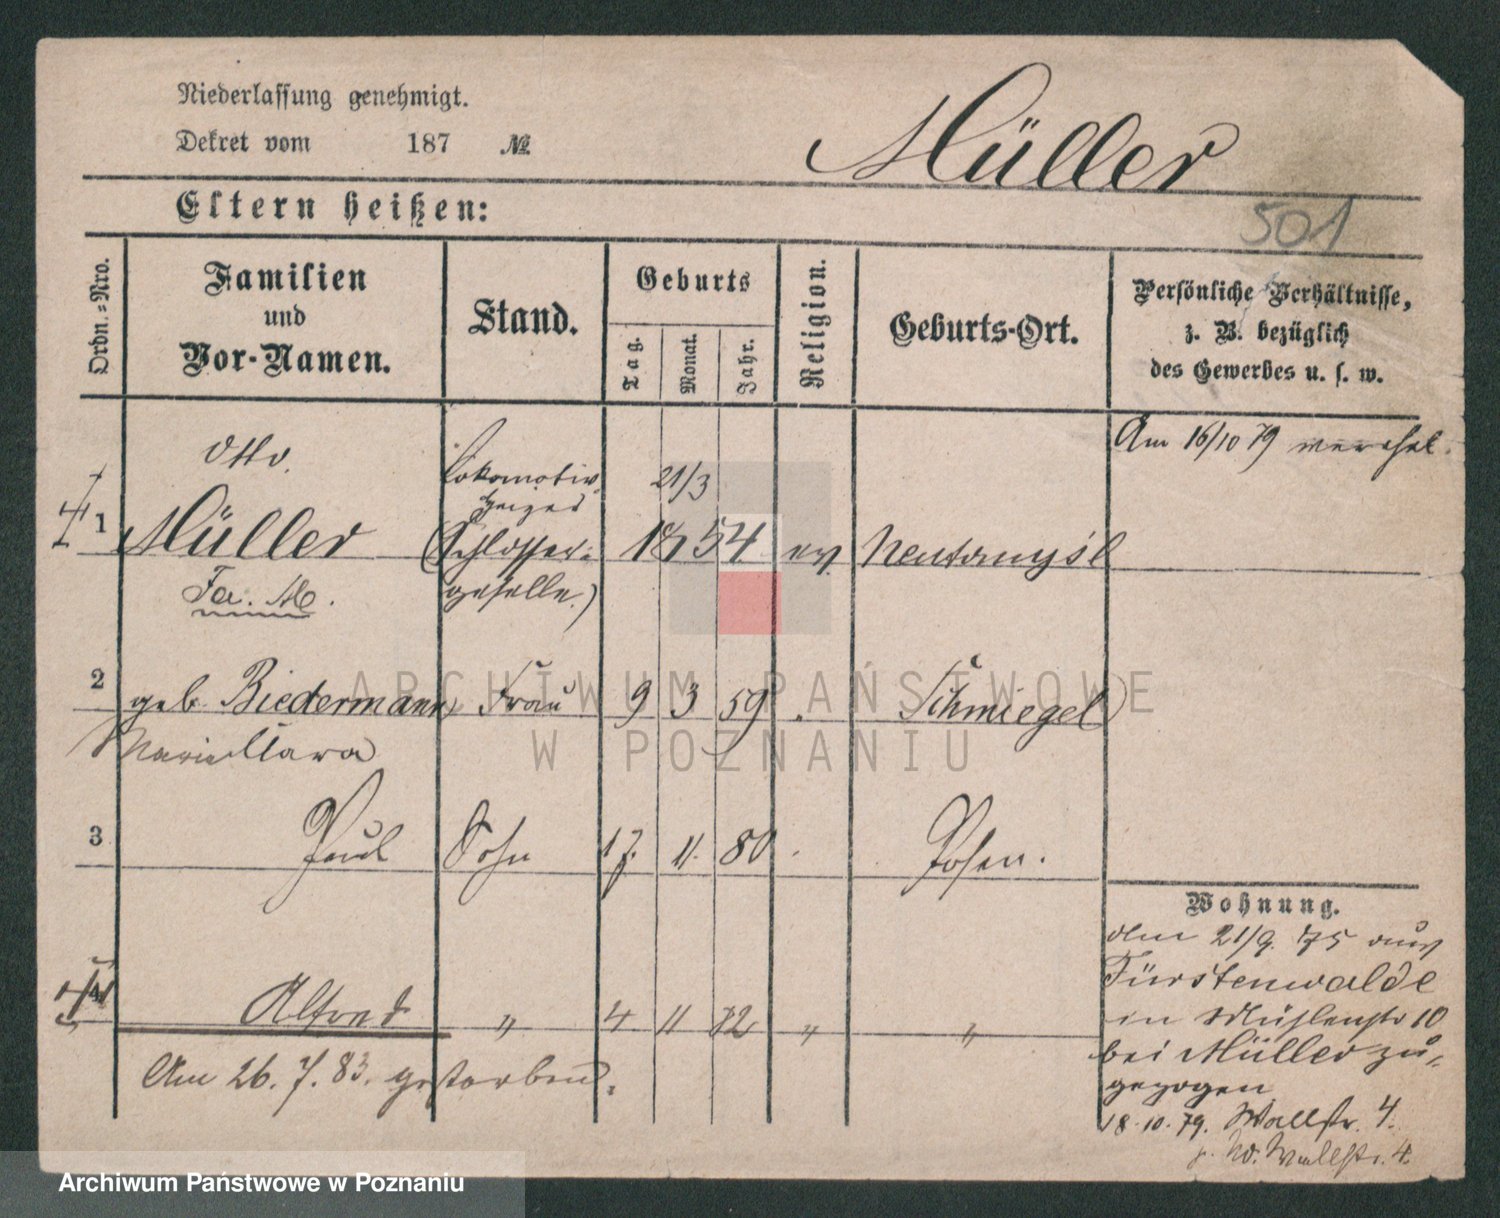 Niederlassung genehmigt.
Dekret vom 187 №
Müller
Eltern heißen:
501
Ordn.-Nro.
Familien
und
Vor-Namen.
Stand.
Geburts
Tag.
Monat.
Jahr.
Religion.
Geburts-Ort.
Persönliche Verhältnisse,
z. B. bezüglich
des Gewerbes u. s. w.
Am 16/10 79
Otto
Lokomotiv
heizer
21/3
1
Müller
(Schlosser-
1854
ev
Neutomysl
geselle.)
2
geb. Biedermann
Frau
9 3 59
Schmiegel
Maria Clara
3
Paul
Sohn
17. 11. 80
Posen.
Wohnung.
den 21/9. 75 aus
Fürstenwalde
in Mühlenstr 10
bei Müller zu-
gezogen
18.10.79. Wallstr. 4.
Wallstr. 4.
4
Alfred
" 4 11 " "
Am 26. 7. 83. gestorben.
ARCHIWUM PAŃSTWOWE
W POZNANIU
Archiwum Państwowe w Poznaniu